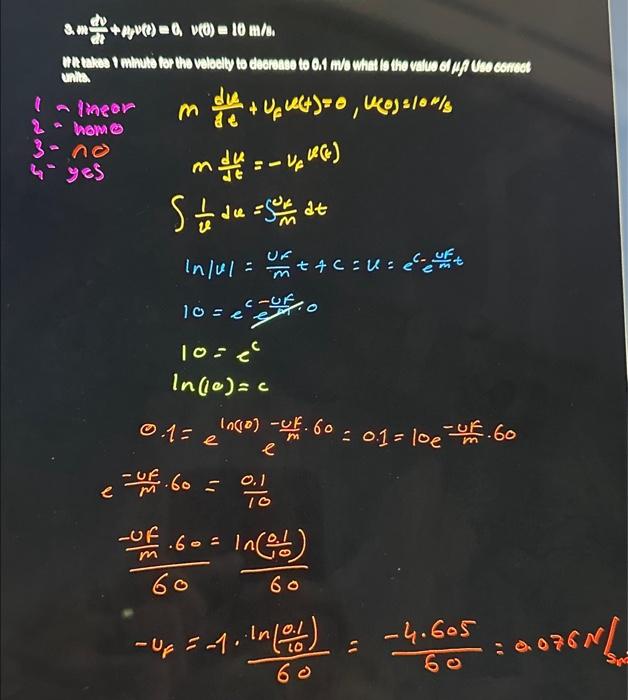 3. m dv/dt + μ_f v(t) = 0, v(0) = 10 m/s.
If it takes 1 minute for the velocity to decrease to 0.1 m/s what is the value of μ_f? Use correct
units.
1 - linear
2 - homo
3 - no
4 - yes
m dv/dt + U_F v(t) = 0, v(0) = 10 m/s
m dv/dt = - U_F v(t)
∫ 1/v dv = ∫ U_F/m dt
ln|v| = UF/m t + C = v = e^C e^(-UF/m t)
10 = e^C e^(-UF/m · 0)
10 = e^C
ln(10) = C
0.1 = e^(ln(10)) e^(-UF/m · 60) = 0.1 = 10e^(-UF/m · 60)
e^(-UF/m · 60) = 0.1/10
(-UF/m · 60)/60 = ln(0.1/10)/60
-U_F = -1 · ln(0.1/10)/60 = -4.605/60 = 0.076 N/